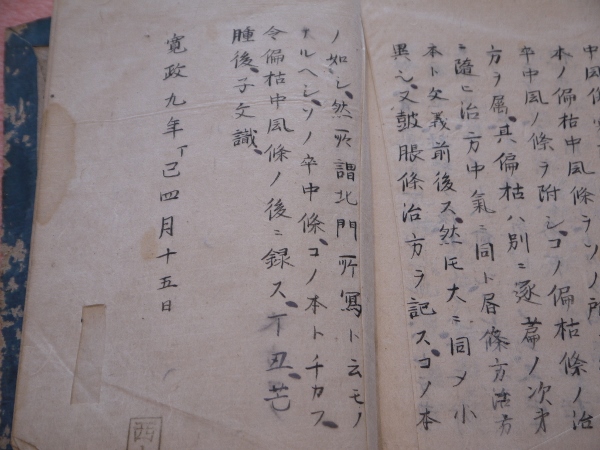 中風
本ノ偏枯中風條ヲソノ所
卒中風ノ條ヲ附シコノ偏枯條ノ治
方ヲ属其偏枯ハ別ニ逐篇ノ次才
ニ隨ヒ治方中氣ニ同ト
本ト文義前後ス然𪜈大ニ同メ小
異シ又皷脹條治方ヲ記スコノ本
ノ如シ然所謂北門所寫ト云モノ
ナルヘシソノ卒中條コノ本トチカフ
令偏枯中風條ノ後ニ録ス丁丑芒
種後子文識
寛政九年丁巳四月十五日
西